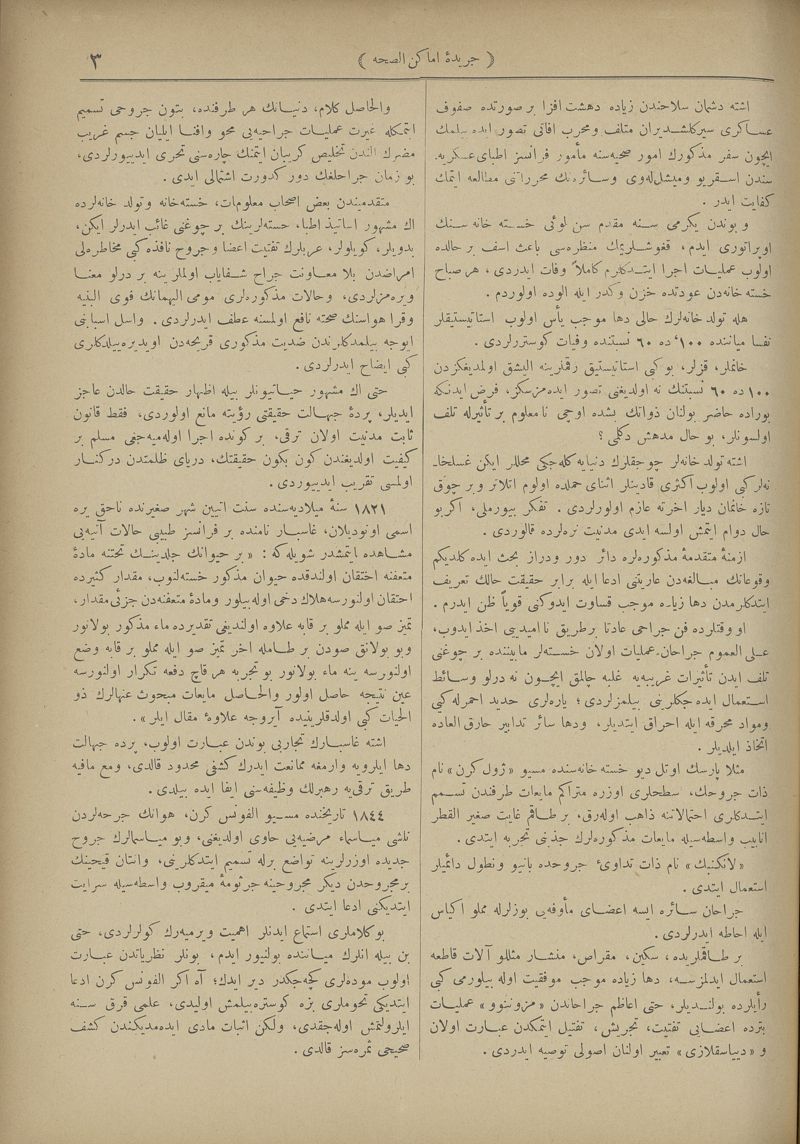 ﴿ جريدهٔ اماكن الصحه ﴾
٣
اشته دشمان سلاحندن زياده دهشت افزا بر صورتده صفوف
عساكرى سيركلشديران متلف ومخرب آفاتى تصور ايده بيلمك
ايچون سفر مذكورك امور صحيه‌سنه مأمور فرانسز اطباى عسكريه
سندن اسقريو وميشل‌لوى وسائره‌نك محرراتنى مطالعه ايتمك
كفايت ايدر .
و بوندن يكرمى سنه مقدم سن لوئى خسته خانه سنك
اوپراتورى ايدم، قغوشلريمك منظره‌سى باعث اسف بر حالده
اولوب عمليات اجرا ايتديكلرم كاملاً وفات ايدردى، هر صباح
خسته خانه‌دن عودتده حزن وكدر ايله آلوده اولوردم .
هله تولد خانه‌لرك حالى دها موجب يأس اولوب استاتيستيقلر
نفسا مياننده ١٠٠’ده ٦٠ نسبتنده وفيات كوستررلردى .
خانملر، قزلر، بو كى استاتيستيق رقملرينه آليشق اولمديغكزدن
١٠٠ ده ٦٠ نسبتنك نه اولديغنى تصور ايده‌مزسكز، فرض ايدنكه
بوراده حاضر بولنان ذواتك بشده اوچى نامعلوم بر تأثيرله تلف
اولسونلر، بو حال مدهش دكلى ؟
اشته تولد خانه‌لر چوجقلرك دنيايه كله‌جكى محللر ايكن غسلخا-
نه‌لر كى اولوب اكثرى قادينلر اثناى حملده اولوم آكلاتر و بر چوق
تازه خانمان ديار آخرته عازم اولورلردى . تفكر بيورملى، اكر بو
حال دوام ايتمش اولسه ايدى مدنيت نره‌لرده قالوردى .
ازمنهٔ متقدمهٔ مذكوره‌لره دائر دور ودراز بحث ايده كلديكم
وقوعاتك مبالغه‌دن عاريتنى ادعا ايله برابر حقيقت حالك تعريف
ايتدكلرمدن دها زياده موجب قساوت ايدوكنى قوياً ظن ايدرم .
او وقتلرده فن جراحى عادتا بر طريق نااميديى اخذ ايدوب،
على العموم جراحان عمليات اولان خسته‌لر مابيننده بر چوغنى
تلف ايدن تأثيرات غريبه‌يه غلبه چالمق ايچون نه درلو وسائط
استعمال ايده جكلرينى بيلمزلردى ؛ ياره‌لرى حديد احمرله كى
ومواد محرقه ايله احراق ايتديلر، ودها سائر تدابير خارق العاده
اتخاذ ايلديلر .
مثلا پارسك اوتل ديو خسته خانه‌سنده مسيو «ژول كرن» نام
ذات جروحك، سطحلرى اوزره متراكم مايعات طرفندن تسمم
ايتدكلرى احتمالاتنه ذاهب اوله‌رق، بر طاقم غايت صغير القطر
انابيب واسطه‌سيله مايعات مذكوره‌لرك جذبنى تجربه ايتدى .
«لانكنبك» نام ذات تداوئ جروحده بانيو ونطول دائميلر
استعمال ايتدى .
جراحان سائره ايسه اعضاى مأوفه‌يى بوزلرله مملو اكياس
ايله احاطه ايدرلردى .
بر طاقملريده، سكين، مقراض، منشار مثللو آلات قاطعه
استعمال ايدلمزسه، دها زياده موجب موفقيت اوله بيلورمى كى
رأيلرده بولنديلر، حتى اعاظم جراحاندن «مزونوو» عمليات
يترده اعضايى تفتيت، تجريش، تفتيل ايتمكدن عبارت اولان
و «ديپاسقلازى» تعبير اولنان اصولى توصيه ايدردى .
والحاصل كلام، دنيانك هر طرفنده، بتون جروحى تسميم
ايتمكله غيرت عمليات جراحيه‌يى محو وافنا ايليان جسم غريب
مضرك الندن تخليص كريبان ايتمنك چاره‌سنى تحرى ايديبورلردى،
بو زمان جراحلغك دور كدورت اشتمالى ايدى .
متقدميندن بعض اصحاب معلومات، خسته‌خانه وتولد خانه‌لرده
اك مشهور اساتيذ اطبا، خسته‌لرينك بر چوغنى غائب ايدرلر ايكن،
بدويلر، كويلولر، عربلرك تفتيت اعضا وجروح نافذه كى مخاطره‌لى
امراضدن بلا معاونت جراح شفاياب اولملرينه بر درلو معنا
ويره‌مزلردى، وحالات مذكوره‌لرى مومى اليهمانك قوى البنيه
وقرا هواسنك صحته نافع اولمسنه عطف ايدرلردى . واسل اسبابنى
ايوجه بيلمدكلرندن ضديت مذكورى قريحه‌دن اويديره‌بيلدكلرى
كى ايضاح ايدرلردى .
حتى اك مشهور حياتيونلر بيله اظهار حقيقت حالدن عاجز
ايديلر، پردهٔ جهالت حقيقتى رؤيته مانع اولوردى، فقط قانون
ثابت مدنيت اولان ترقى، بر كونده اجرا اوله‌ميه‌جغى مسلم بر
كيفيت اولديغندن كون بكون حقيقتك، درياى ظلمتدن دركنار
اولمسى تقريب ايدييوردى .
١٨٢١ سنهٔ ميلاديه‌سنده سنت اتيين شهر صغيرنده ناحق يره
اسمى اونوديلان، غاسپار نامنده بر فرانسز طبيبى حالات آتيه‌يى
مشاهده ايتمشدر شويله كه : «بر حيوانك جلدينك تحتنه مادهٔ
متعفنه احتقان اولندقده حيوان مذكور خسته‌لنوب، مقدار كثيرده
احتقان اولنورسه هلاك دخى اوله‌بيلور ومادهٔ متعفنه‌دن جزئى مقدار،
تميز صو ايله مملو بر قابه علاوه اولنديغى تقديرده ماء مذكور بولانور
وبو بولانق صودن بر طامله آخر تميز صو ايله مملو بر قابه وضع
اولنورسه ينه ماء بولانور بو تجربه هر قاچ دفعه تكرار اولنورسه
عين نتيجه حاصل اولور والحاصل مايعات مبحوث عنهالرك ذو
الحيات كى اولدقلرينيده آيروجه علاوهٔ مقال ايلر» .
اشته غاسپارك تجاربى بوندن عبارت اولوب، پرده جهالت
دها ايلرويه وارمغه ممانعت ايدرك كشفى محدود قالدى، ومع مافيه
طريق ترقى‌يه رهبرلك وظيفه‌سنى ايفا ايده بيلدى .
١٨٤٤ تاريخنده مسيو الفونس كرن، هوانك جرحه‌لردن
ناشى مياسماء مرضيه‌يى حاوى اولديغنى، وبو مياسمالرك جروح
جديده اوزرلرينه تواضع برله تسميم ايتدكلرينى، وانتان قيحينك
بر مجروحدن ديكر مجروحينه جرثومهٔ ميقروب واسطه‌سيله سرايت
ايتديكنى ادعا ايتدى .
بو كلاملرى استماع ايدنلر اهميت ويرميه‌رك كولرلردى، حتى
بن بيله آنلرك مياننده بولنيور ايدم، بونلر نظرياتدن عبارت
اولوب موده‌لرى كچه‌جكدر دير ايدك؛ آه اكر الفونس كرن ادعا
ايتديكى تخوملرى بزه كوستره‌بيلمش اوليدى، علمى قرق سنه
ايلرولتمش اوله‌جقدى، ولكن اثبات مادى ايده‌مديكندن كشف
صحيحى ثمره‌سز قالدى .